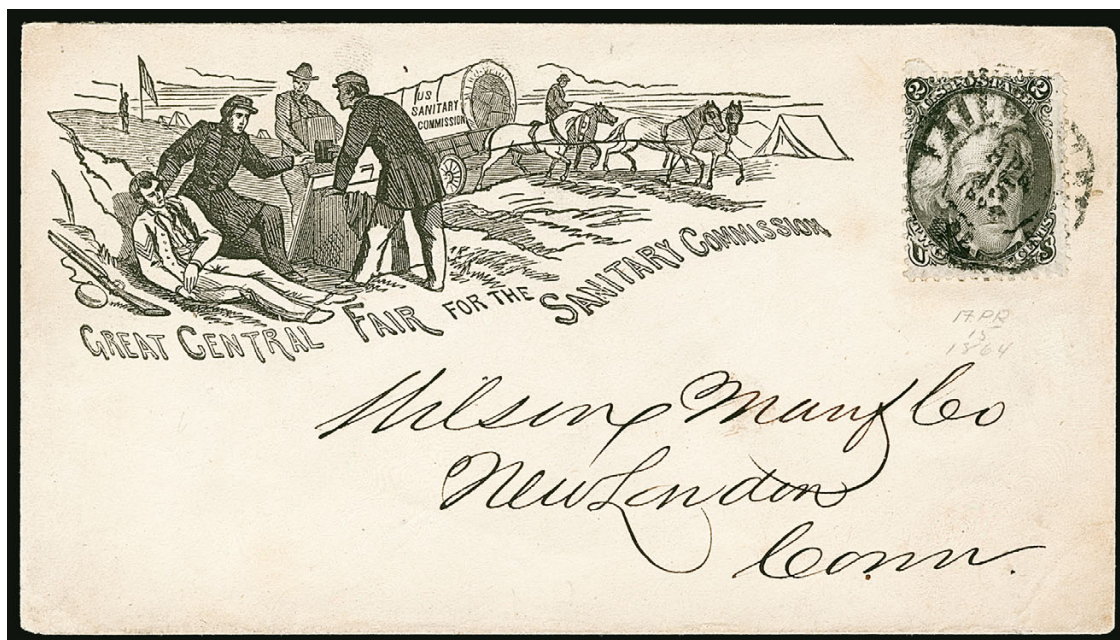 US
SANITARY
COMMISSION
GREAT CENTRAL FAIR FOR THE SANITARY COMMISSION
2 2
U S
Wilson Manuf Co
New London
Conn.
15
1864